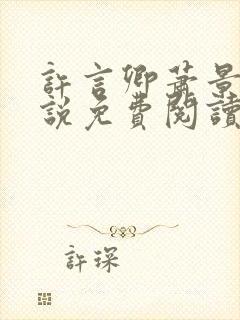 許言卿蕭景
說免費閱讀
許琛